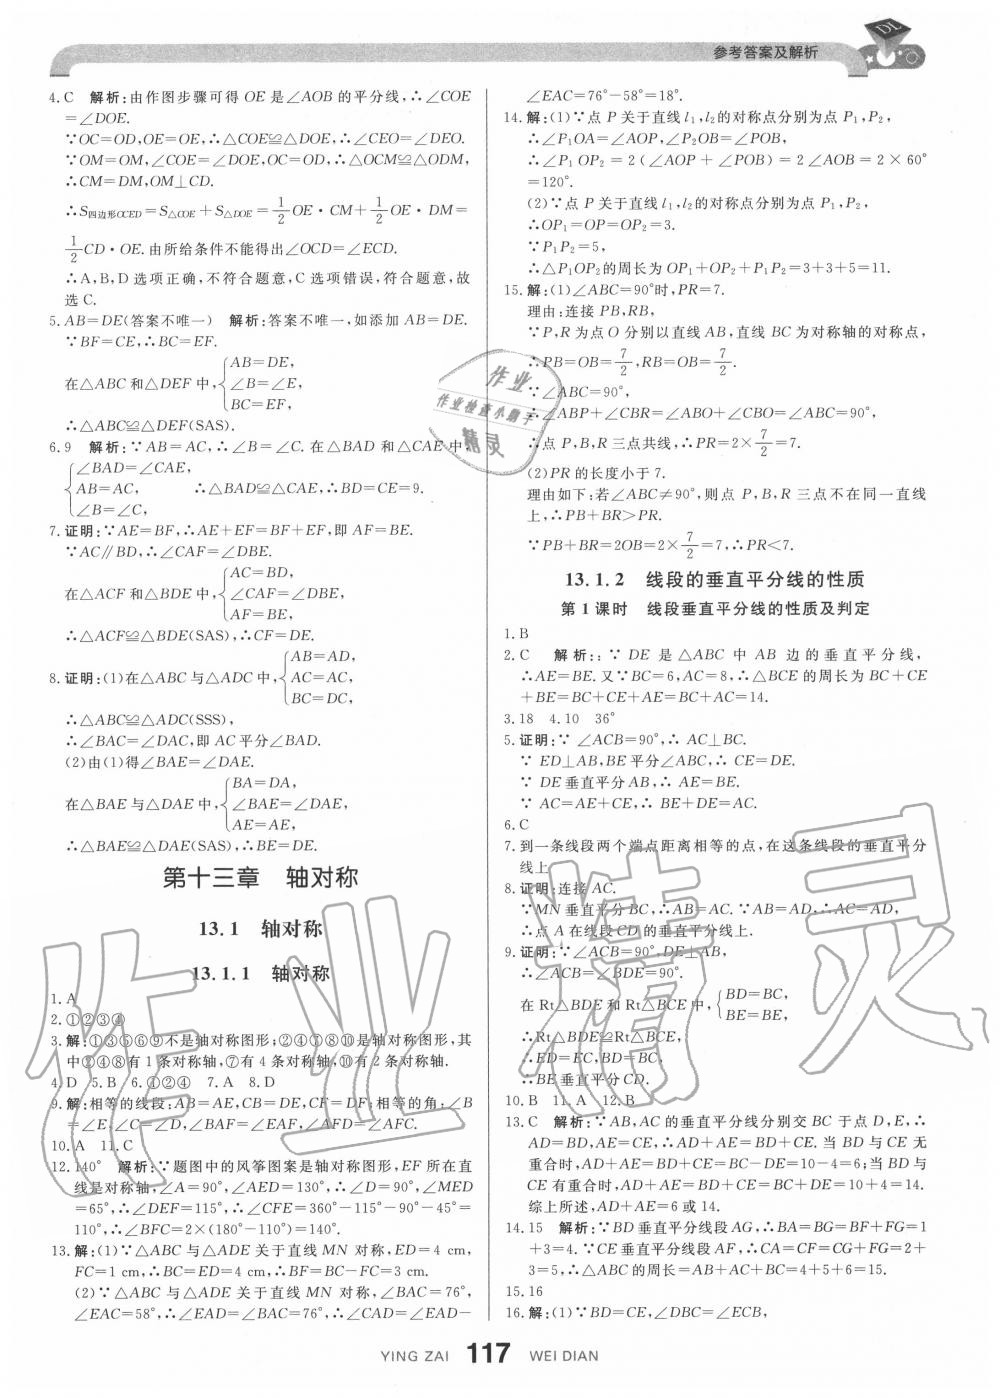 参考答案及解析
DL
4.C 解析:由作图步骤可得 OE 是∠AOB 的平分线,∴∠COE
=∠DOE.
∵OC=OD,OE=OE,∴△COE≌△DOE,∴∠CEO=∠DEO.
∵OM=OM,∠COE=∠DOE,OC=OD,∴△OCM≌△ODM,
∴CM=DM,OM⊥CD.
∴S四边形OCED=S△COE+S△DOE=1/2 OE·CM+1/2 OE·DM=
1/2 CD·OE.由所给条件不能得出∠OCD=∠ECD.
∴A,B,D 选项正确,不符合题意,C 选项错误,符合题意,故
选 C.
5.AB=DE(答案不唯一) 解析:答案不唯一,如添加 AB=DE.
∵BF=CE,∴BC=EF.
在△ABC 和△DEF 中,{AB=DE,
∠B=∠E,
BC=EF,
∴△ABC≌△DEF(SAS).
6.9 解析:∵AB=AC,∴∠B=∠C.在△BAD 和△CAE 中,
{∠BAD=∠CAE,
AB=AC, ∴△BAD≌△CAE,∴BD=CE=9.
∠B=∠C,
7.证明:∵AE=BF,∴AE+EF=BF+EF,即 AF=BE.
∵AC∥BD,∴∠CAF=∠DBE.
在△ACF 和△BDE 中,{AC=BD,
∠CAF=∠DBE,
AF=BE,
∴△ACF≌△BDE(SAS),∴CF=DE.
8.证明:(1)在△ABC 与△ADC 中,{AB=AD,
AC=AC,
BC=DC,
∴△ABC≌△ADC(SSS),
∴∠BAC=∠DAC,即 AC 平分∠BAD.
(2)由(1)得∠BAE=∠DAE.
在△BAE 与△DAE 中,{BA=DA,
∠BAE=∠DAE,
AE=AE,
∴△BAE≌△DAE(SAS),∴BE=DE.
第十三章 轴对称
13.1 轴对称
13.1.1 轴对称
1.A
2.①②③④
3.解:①③⑤⑥⑨不是轴对称图形;②④⑦⑧⑩是轴对称图形,其
中②④⑧有 1 条对称轴,⑦有 4 条对称轴,⑩有 2 条对称轴.
4.D 5.B 6.①②④ 7.A 8.D
9.解:相等的线段:AB=AE,CB=DE,CF=DF;相等的角:∠B
=∠E,∠C=∠D,∠BAF=∠EAF,∠AFD=∠AFC.
10.A 11.C
12.140° 解析:∵题图中的风筝图案是轴对称图形,EF 所在直
线是对称轴,∠A=90°,∠AED=130°,∴∠D=90°,∠MED
=65°,∴∠DEF=115°,∴∠CFE=360°-115°-90°-45°=
110°,∴∠BFC=2×(180°-110°)=140°.
13.解:(1)∵△ABC 与△ADE 关于直线 MN 对称,ED=4 cm,
FC=1 cm,∴BC=ED=4 cm,∴BF=BC-FC=3 cm.
(2)∵△ABC 与△ADE 关于直线 MN 对称,∠BAC=76°,
∠EAC=58°,∴∠EAD=∠BAC=76°,∴∠CAD=∠EAD-
∠EAC=76°-58°=18°.
14.解:(1)∵点 P 关于直线 l₁,l₂的对称点分别为点 P₁,P₂,
∴∠P₁OA=∠AOP,∠P₂OB=∠POB,
∴∠P₁OP₂=2(∠AOP+∠POB)=2∠AOB=2×60°
=120°.
(2)∵点 P 关于直线 l₁,l₂的对称点分别为点 P₁,P₂,
∴OP₁=OP=OP₂=3.
∵P₁P₂=5,
∴△P₁OP₂的周长为 OP₁+OP₂+P₁P₂=3+3+5=11.
15.解:(1)∠ABC=90°时,PR=7.
理由:连接 PB,RB,
∵P,R 为点 O 分别以直线 AB,直线 BC 为对称轴的对称点,
∴PB=OB=7/2,RB=OB=7/2.
∵∠ABC=90°,
∴∠ABP+∠CBR=∠ABO+∠CBO=∠ABC=90°,
∴点 P,B,R 三点共线,∴PR=2×7/2=7.
(2)PR 的长度小于 7.
理由如下:若∠ABC≠90°,则点 P,B,R 三点不在同一直线
上,∴PB+BR>PR.
∵PB+BR=2OB=2×7/2=7,∴PR<7.
13.1.2 线段的垂直平分线的性质
第 1 课时 线段垂直平分线的性质及判定
1.B
2.C 解析:∵DE 是△ABC 中 AB 边的垂直平分线,
∴AE=BE.又∵BC=6,AC=8,∴△BCE 的周长为 BC+CE
+BE=BC+CE+AE=BC+AC=14.
3.18 4.10 36°
5.证明:∵∠ACB=90°,∴AC⊥BC.
∵ED⊥AB,BE 平分∠ABC,∴CE=DE.
∵DE 垂直平分 AB,∴AE=BE.
∵AC=AE+CE,∴BE+DE=AC.
6.C
7.到一条线段两个端点距离相等的点,在这条线段的垂直平分
线上
8.证明:连接 AC.
∵MN 垂直平分 BC,∴AB=AC.∵AB=AD,∴AC=AD,
∴点 A 在线段 CD 的垂直平分线上.
9.证明:∵∠ACB=90°,DE⊥AB,
∴∠ACB=∠BDE=90°.
在 Rt△BDE 和 Rt△BCE 中,{BD=BC,
BE=BE,
∴Rt△BDE≌Rt△BCE,
∴ED=EC,BD=BC,
∴BE 垂直平分 CD.
10.B 11.A 12.B
13.C 解析:∵AB,AC 的垂直平分线分别交 BC 于点 D,E,∴
AD=BD,AE=CE,∴AD+AE=BD+CE.当 BD 与 CE 无
重合时,AD+AE=BD+CE=BC-DE=10-4=6;当 BD 与
CE 有重合时,AD+AE=BD+CE=BC+DE=10+4=14.
综上所述,AD+AE=6 或 14.
14.15 解析:∵BD 垂直平分线段 AG,∴BA=BG=BF+FG=1
+3=4.∵CE 垂直平分线段 AF,∴CA=CF=CG+FG=2+
3=5,∴△ABC 的周长=AB+AC+BC=4+5+6=15.
15.16
16.解:(1)∵BD=CE,∠DBC=∠ECB,
YING ZAI 117 WEI DIAN
作业
作业检查小助手
精灵
作业精灵